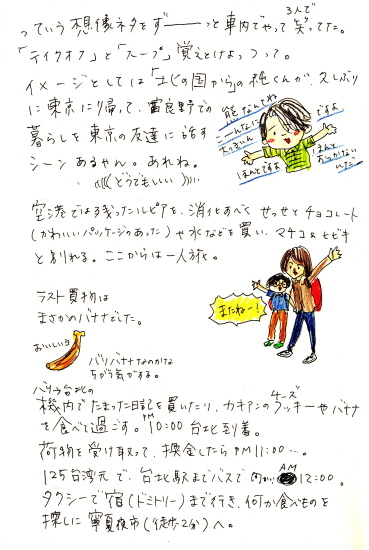 っていう想像ネタをずーーっと車内でやって3人で笑ってた。
「テイクオフ」と「スープ」覚えとけよっつって。
イメージとしては「北の国から」の純くんが、久しぶり
に東京に帰って、富良野での
暮らしを東京の友達に話す
シーンあるやん。あれね。
どうでもしい
熊なんてね
こーんなに
大っきいん
ですよ
ほんとですよ
ほんと
おっかない
んだ
空港では残ったルピアを、消化すべく せっせとチョコレート
(かわいいパッケージのあった)や水などを買い、マチコ&ヒビキ
と別れる。ここからは一人旅。
またねー!
ラスト買物は
まさかのバナナでした。
おいしいヨ
バリバナナなのかな
ちがう気がする。
バリ→台北の
機内でたまった日記を書いたり、カキアンのチーズクッキーやバナナ
を食べて過ごす。PM10:00 台北到着。
荷物を受け取って、換金したらPM11:00…。
125台湾元で、台北駅までバスで向かい AM12:00。
タクシーで宿(ドミトリー)まで行き、何か食べものを
探しに寧夏夜市(徒歩2分)へ。